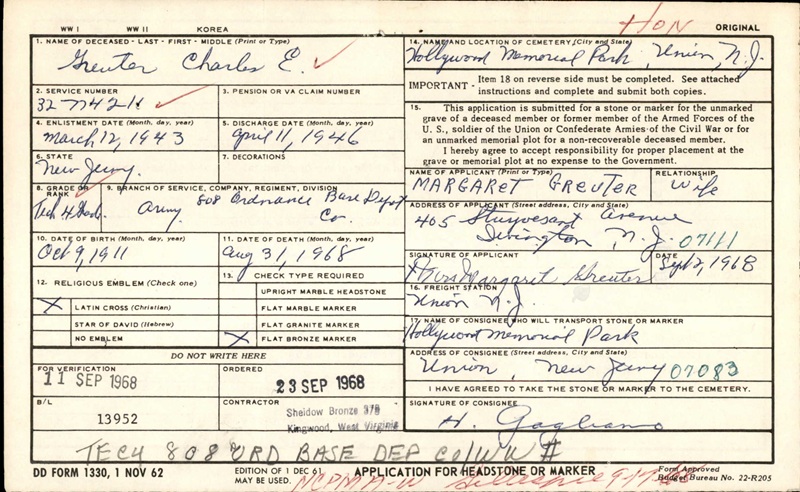 HON
WW I WW II KOREA ORIGINAL
1. NAME OF DECEASED - LAST - FIRST - MIDDLE (Print or Type)
Greuter Charles E.
2. SERVICE NUMBER
3. PENSION OR VA CLAIM NUMBER
4. ENLISTMENT DATE (Month, day, year)
March 12, 1943
5. DISCHARGE DATE (Month, day, year)
April 11, 1946
6. STATE
New Jersey
7. DECORATIONS
8. GRADE OR RANK
Tech 4 Grade
9. BRANCH OF SERVICE, COMPANY, REGIMENT, DIVISION
Army 808 Ordnance Base Depot Co.
10. DATE OF BIRTH (Month, day, year)
Oct 9, 1911
11. DATE OF DEATH (Month, day, year)
Aug 31, 1968
12. RELIGIOUS EMBLEM (Check one)
X LATIN CROSS (Christian)
STAR OF DAVID (Hebrew)
NO EMBLEM
13. CHECK TYPE REQUIRED
UPRIGHT MARBLE HEADSTONE
FLAT MARBLE MARKER
FLAT GRANITE MARKER
X FLAT BRONZE MARKER
DO NOT WRITE HERE
FOR VERIFICATION
11 SEP 1968
ORDERED
23 SEP 1968
B/L
13952
CONTRACTOR
Sheidow Bronze 378
Kingwood, West Virginia
14. NAME AND LOCATION OF CEMETERY (City and State)
Hollywood Memorial Park, Union, N.J.
IMPORTANT - Item 18 on reverse side must be completed. See attached
instructions and complete and submit both copies.
15. This application is submitted for a stone or marker for the unmarked
grave of a deceased member or former member of the Armed Forces of the
U. S., soldier of the Union or Confederate Armies of the Civil War or for
an unmarked memorial plot for a non-recoverable deceased member.
I hereby agree to accept responsibility for proper placement at the
grave or memorial plot at no expense to the Government.
NAME OF APPLICANT (Print or Type)
MARGARET GREUTER
RELATIONSHIP
Wife
ADDRESS OF APPLICANT (Street address, City and State)
405 Stuyvesant Avenue
Irvington, N.J. 07111
SIGNATURE OF APPLICANT
Mrs. Margaret Greuter
DATE
Sept 2, 1968
16. FREIGHT STATION
Union N.J.
17. NAME OF CONSIGNEE WHO WILL TRANSPORT STONE OR MARKER
Hollywood Memorial Park
ADDRESS OF CONSIGNEE (Street address, City and State)
Union, New Jersey 07083
I HAVE AGREED TO TAKE THE STONE OR MARKER TO THE CEMETERY.
SIGNATURE OF CONSIGNEE
H. Gagliano
TEC4 808 ORD BASE DEP CO WW
DD FORM 1330, 1 NOV 62
EDITION OF 1 DEC 61
MAY BE USED.
APPLICATION FOR HEADSTONE OR MARKER
Form Approved
Budget Bureau No. 22-R205